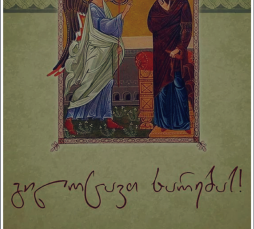 გილოცავთ ხარებას!